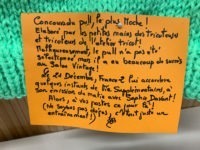 Concours du pull, le plus Moche !
Elaboré par les petites mains des tricoteuses
et tricoteurs de l'atelier tricot !
Malheureusement, le pull n'a pas été
Sélectionné mais il a eu beaucoup de succès
au Salon Vintage !
Le 21 Décembre, France 2 lui accordera
quelques instants de Vie Supplémentaires, à
son émission du matin avec Sophie Davant !
Alors, à vos postes ça pour
c'était juste un
entraînement !)